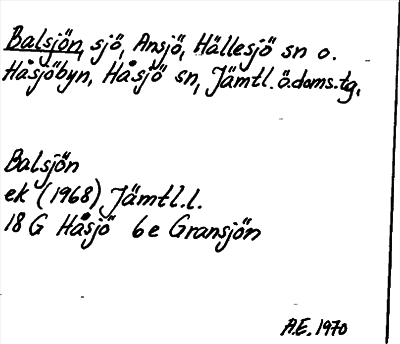 Balsjön, sjö, Ansjö, Hällesjö sn o.
Håsjöbyn, Håsjö sn, Jämtl. ö.doms.tg.
Balsjön
ek (1968) Jämtl.l.
18 G Håsjö 6e Gransjön
A.E. 1970